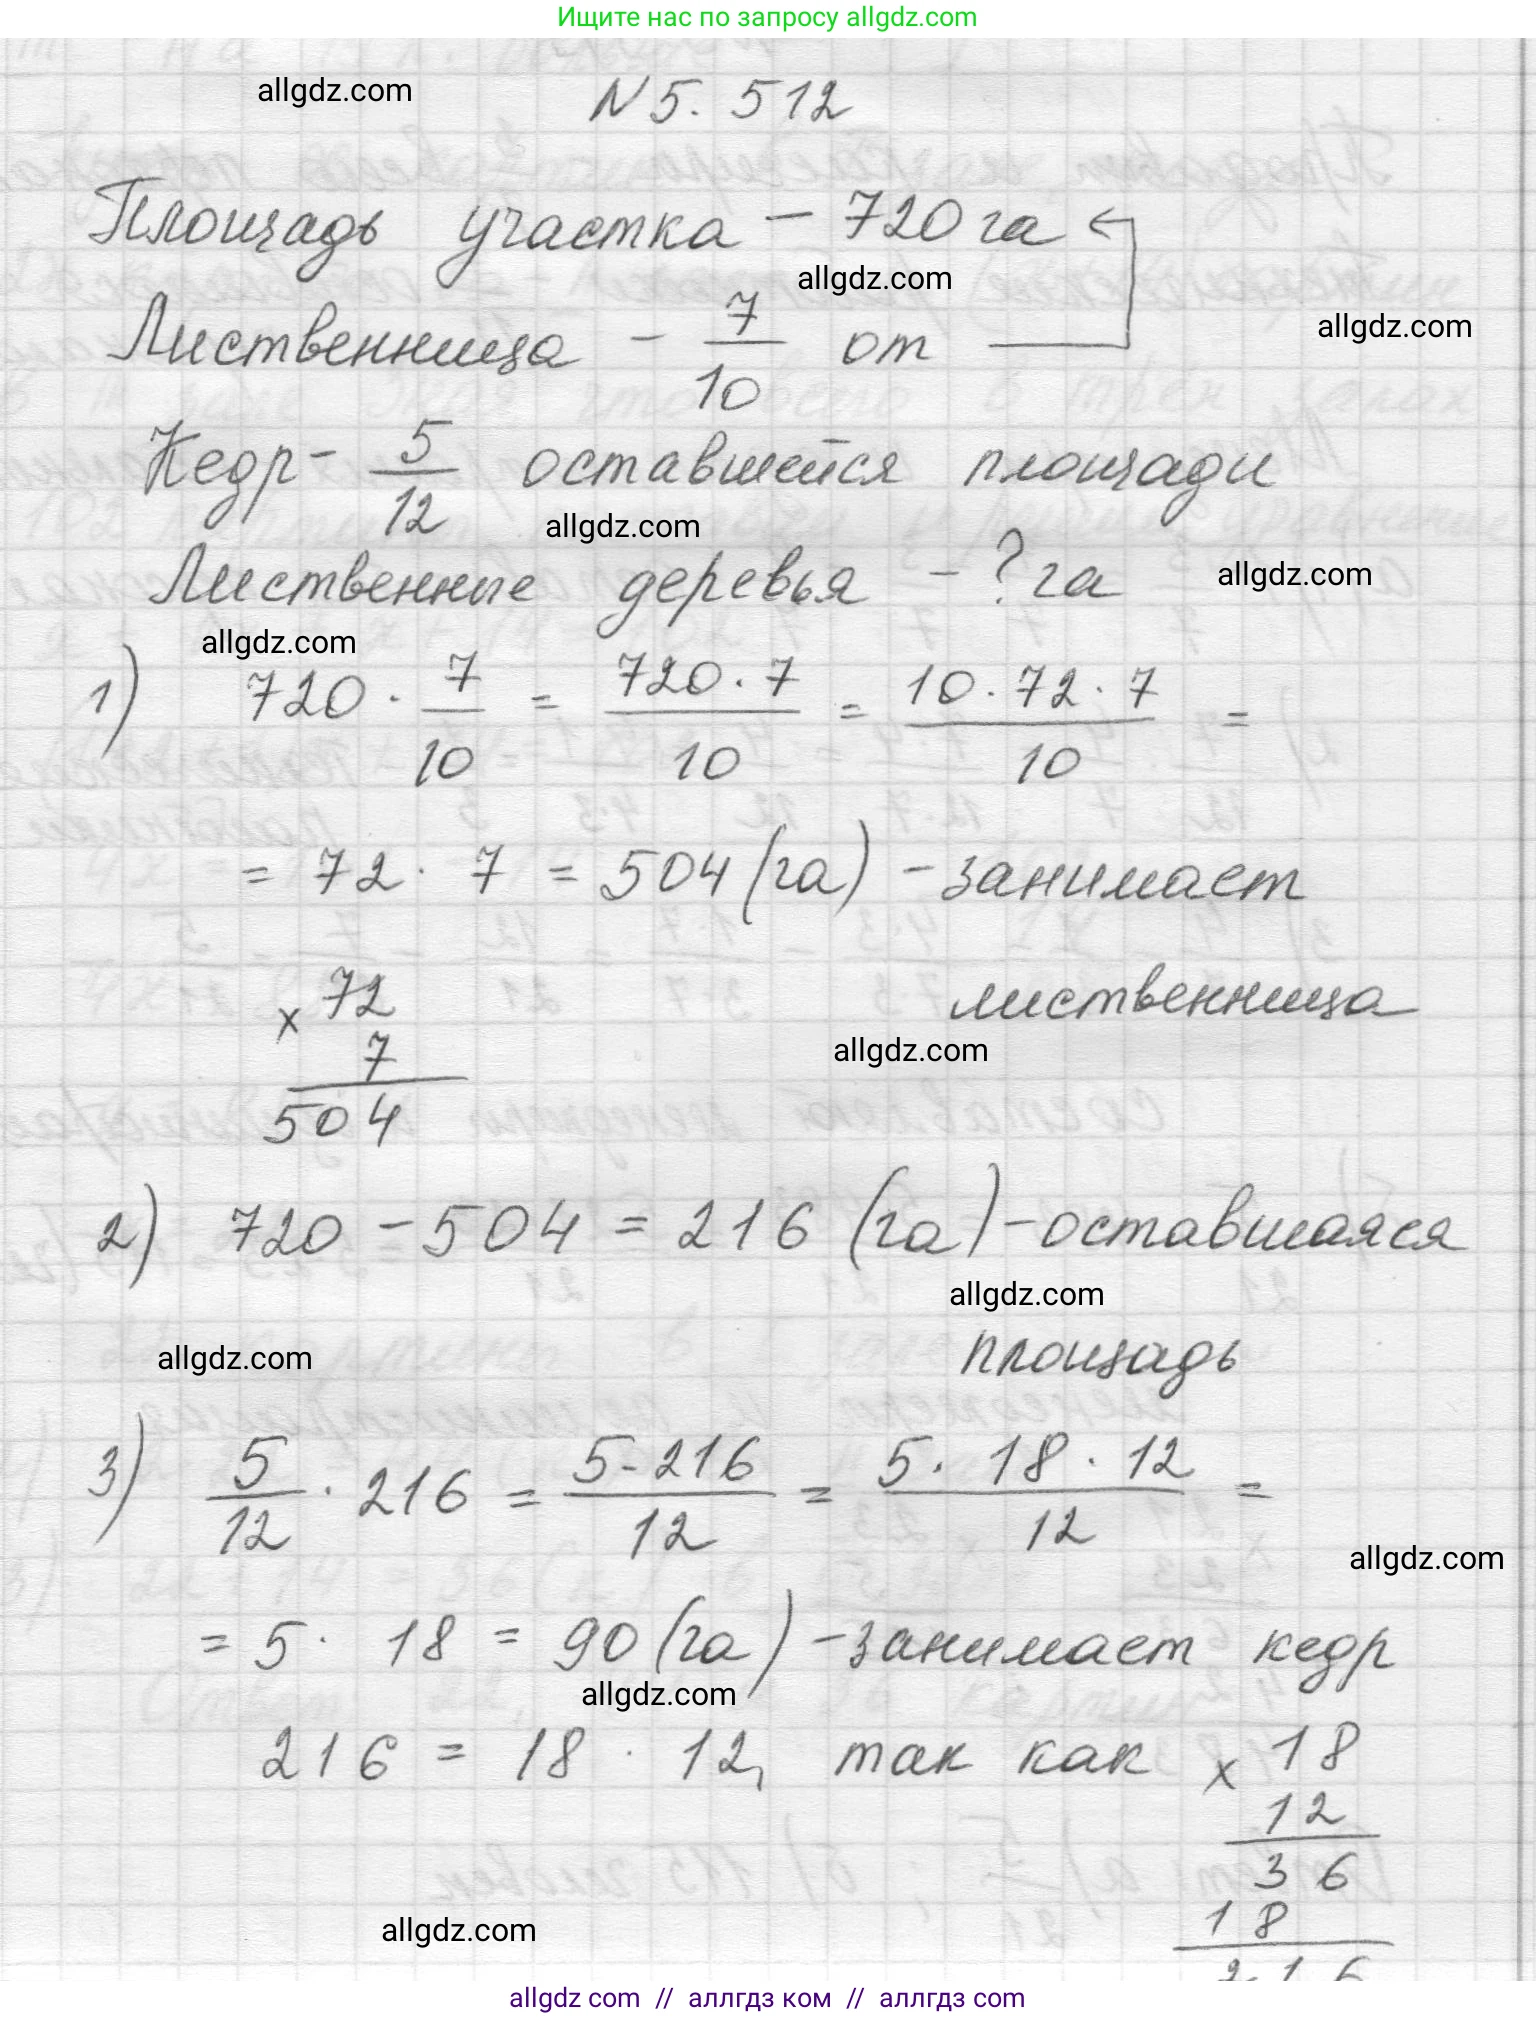 Ищите нас по запросу allgdz.com
allgdz.com
N 5. 512
Площадь участка – 720 га
allgdz.com
Лиственница – 7/10 от
allgdz.com
Кедр – 5/12 оставшейся площади
allgdz.com
Лиственные деревья – ? га
allgdz.com
allgdz.com
1) 720 · 7/10 = 720 · 7/10 = 10 · 72 · 7/10 =
= 72 · 7 = 504 (га) – занимает
лиственница
allgdz.com
x 72
7
504
2) 720 – 504 = 216 (га) – оставшаяся
allgdz.com
площадь
allgdz.com
3) 5/12 · 216 = 5 · 216/12 = 5 · 18 · 12/12 =
allgdz.com
= 5 · 18 = 90 (га) – занимает кедр
allgdz.com
216 = 18 · 12, так как x 18
12
36
18
216
allgdz.com
allgdz com // аллгдз ком // аллгдз com